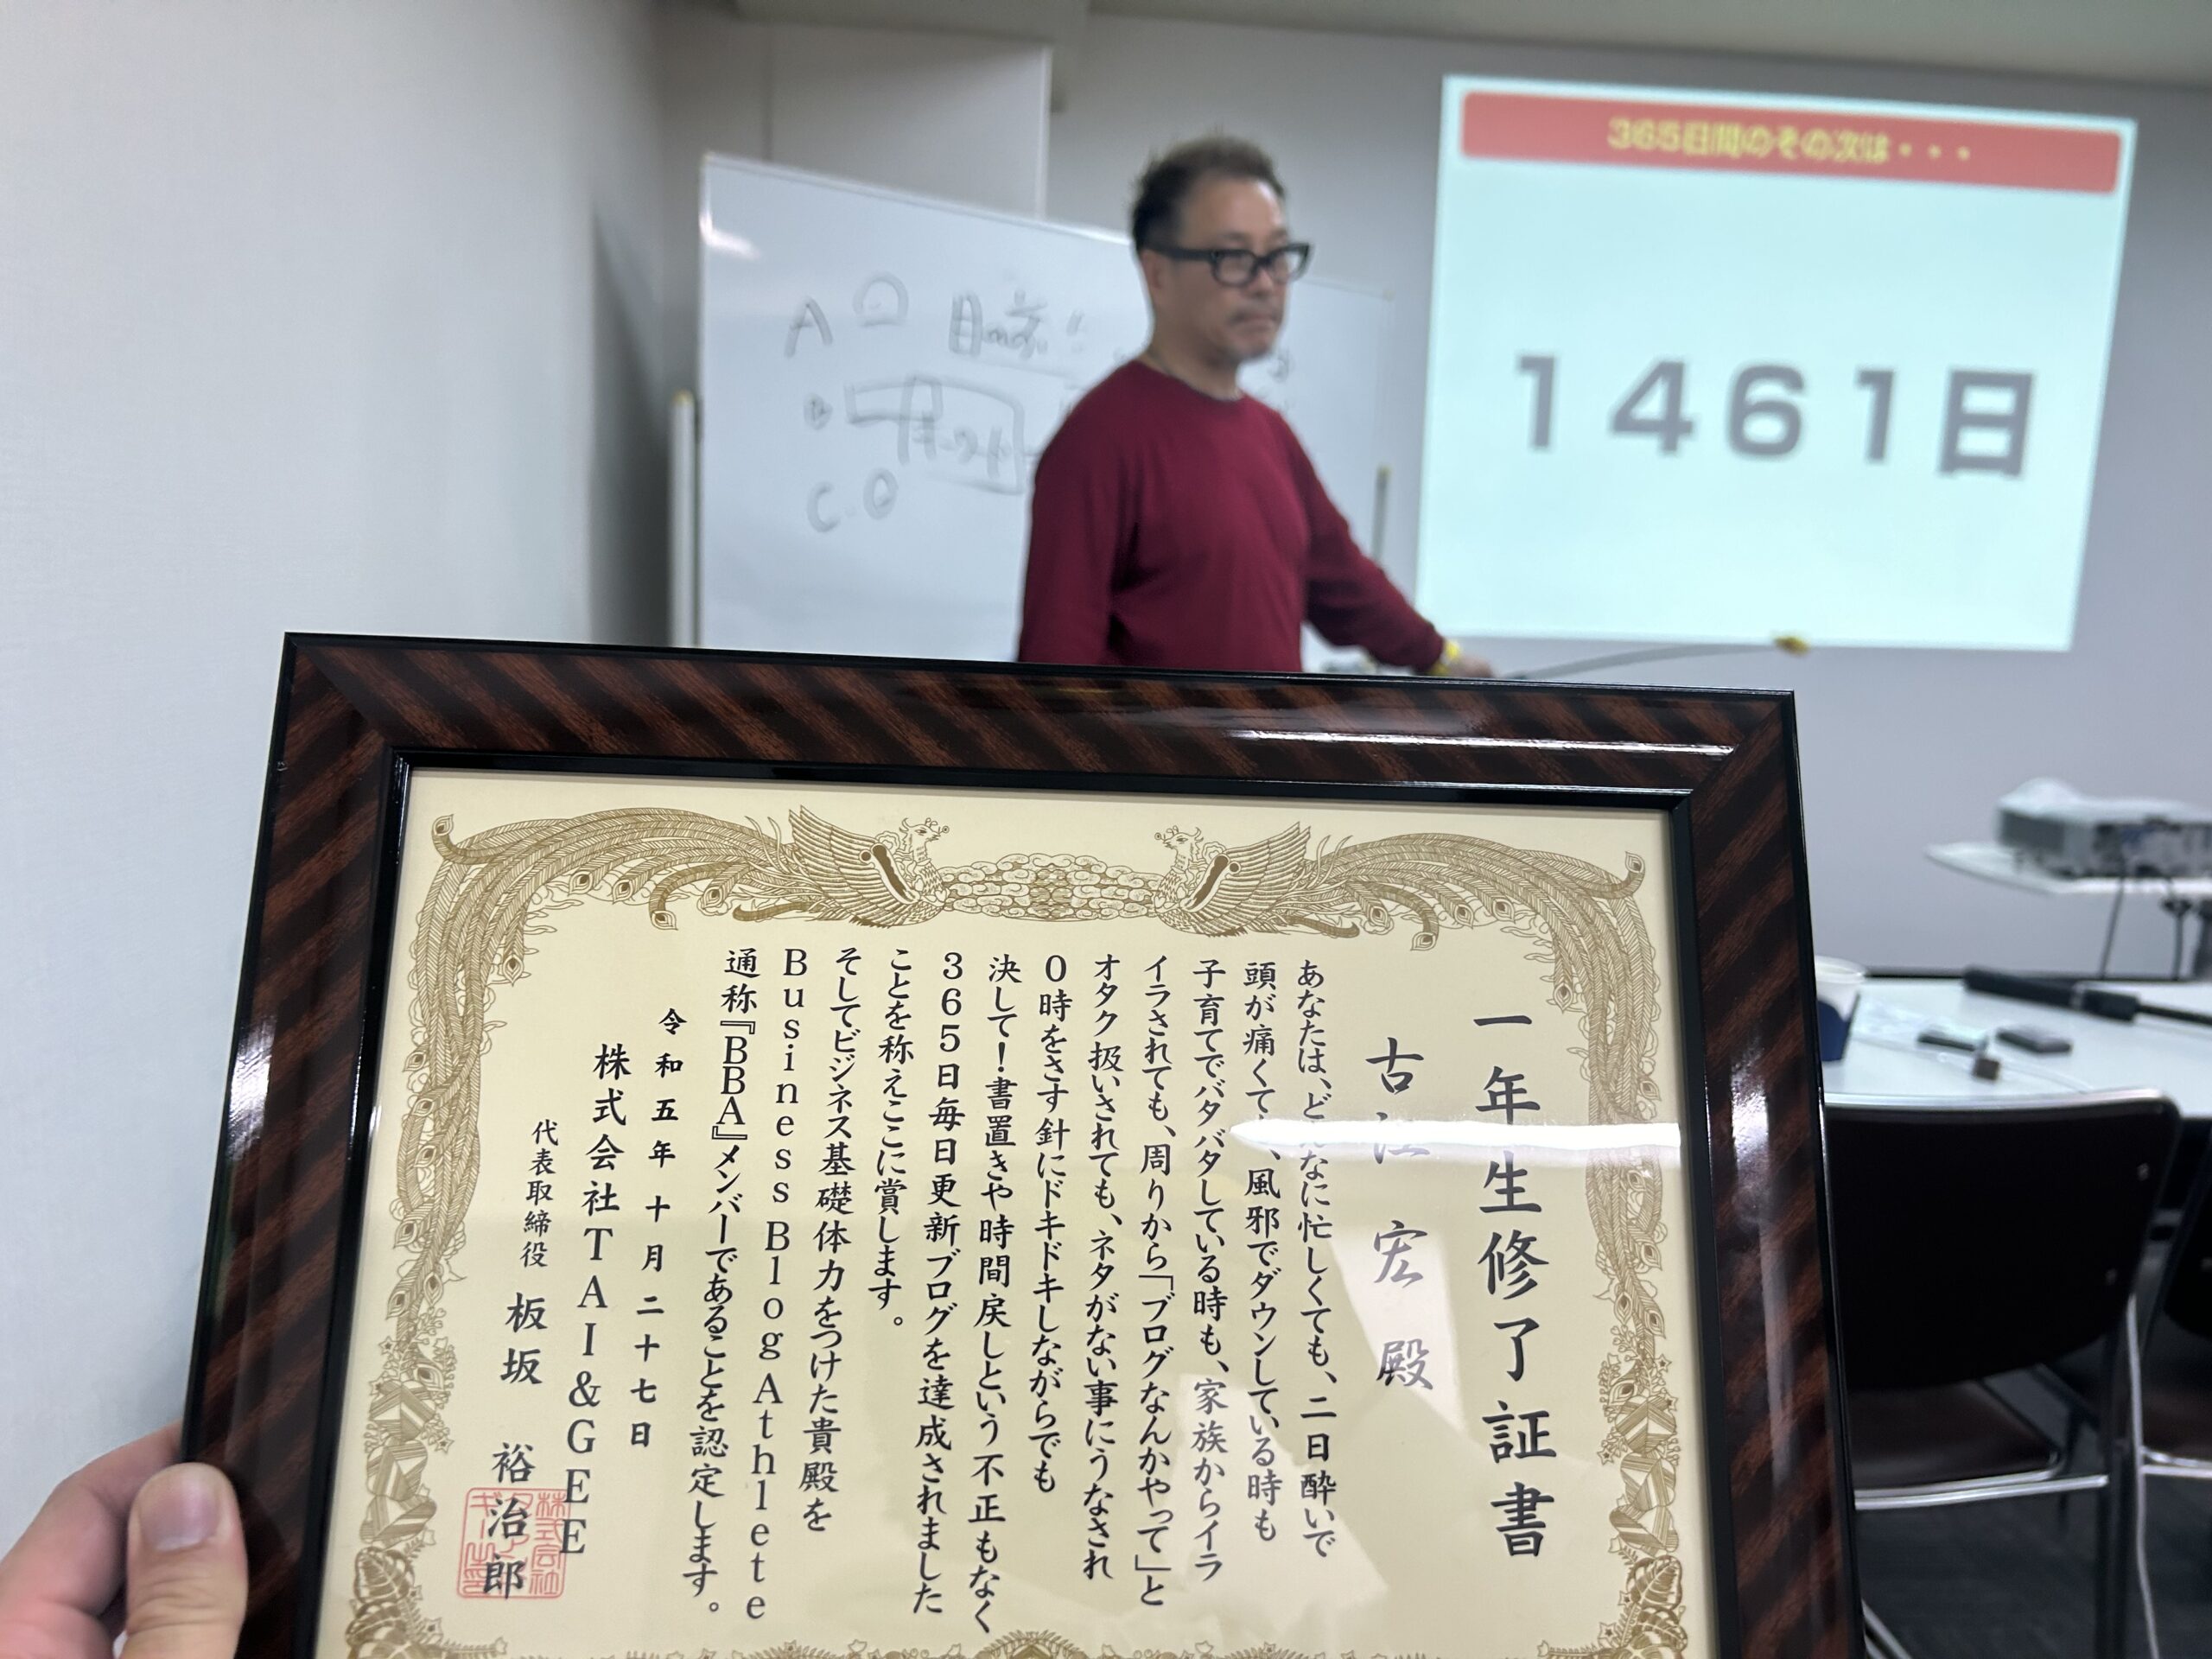 365日間のその次は・・・
1461日
A
目の前!!
B
キーワード
C
一年生修了証書
古江 宏 殿
あなたは、どんなに忙しくても、二日酔いで
頭が痛くても、風邪でダウンしている時も
子育てでバタバタしている時も、家族からイラ
イラされても、周りから「ブログなんかやって」と
オタク扱いされても、ネタがない事にうなされ
0時をさす針にドキドキしながらでも
決して!書置きや時間戻しという不正もなく
365日毎日更新ブログを達成されました
ことを称えここに賞します。
そしてビジネス基礎体力をつけた貴殿を
Business Blog Athlete
通称『BBA』メンバーであることを認定します。
令和五年十月二十七日
株式会社TAI&GEE
代表取締役 板坂 裕治郎